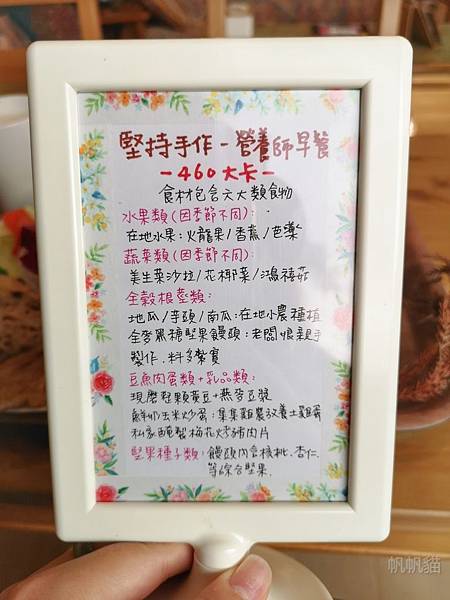 堅持手作-營養師早餐
-460大卡-
食材包含六大類食物
水果類(因季節不同):
在地水果:火龍果/香蕉/芭樂
蔬菜類(因季節不同):
美生菜沙拉/花椰菜/鴻禧菇
全穀根莖類:
地瓜/芋頭/南瓜:在地小農種植
全麥黑糖堅果饅頭:老闆娘親手
製作.料多紮實
豆魚肉蛋類+乳品類:
現磨堅顆黃豆+燕麥豆漿
鮮奶玉米炒蛋:集集雞農放養土雞蛋
私家醃製梅花烤豬肉片
堅果種子類:饅頭內含核桃.杏仁
等綜合堅果.
帆帆貓